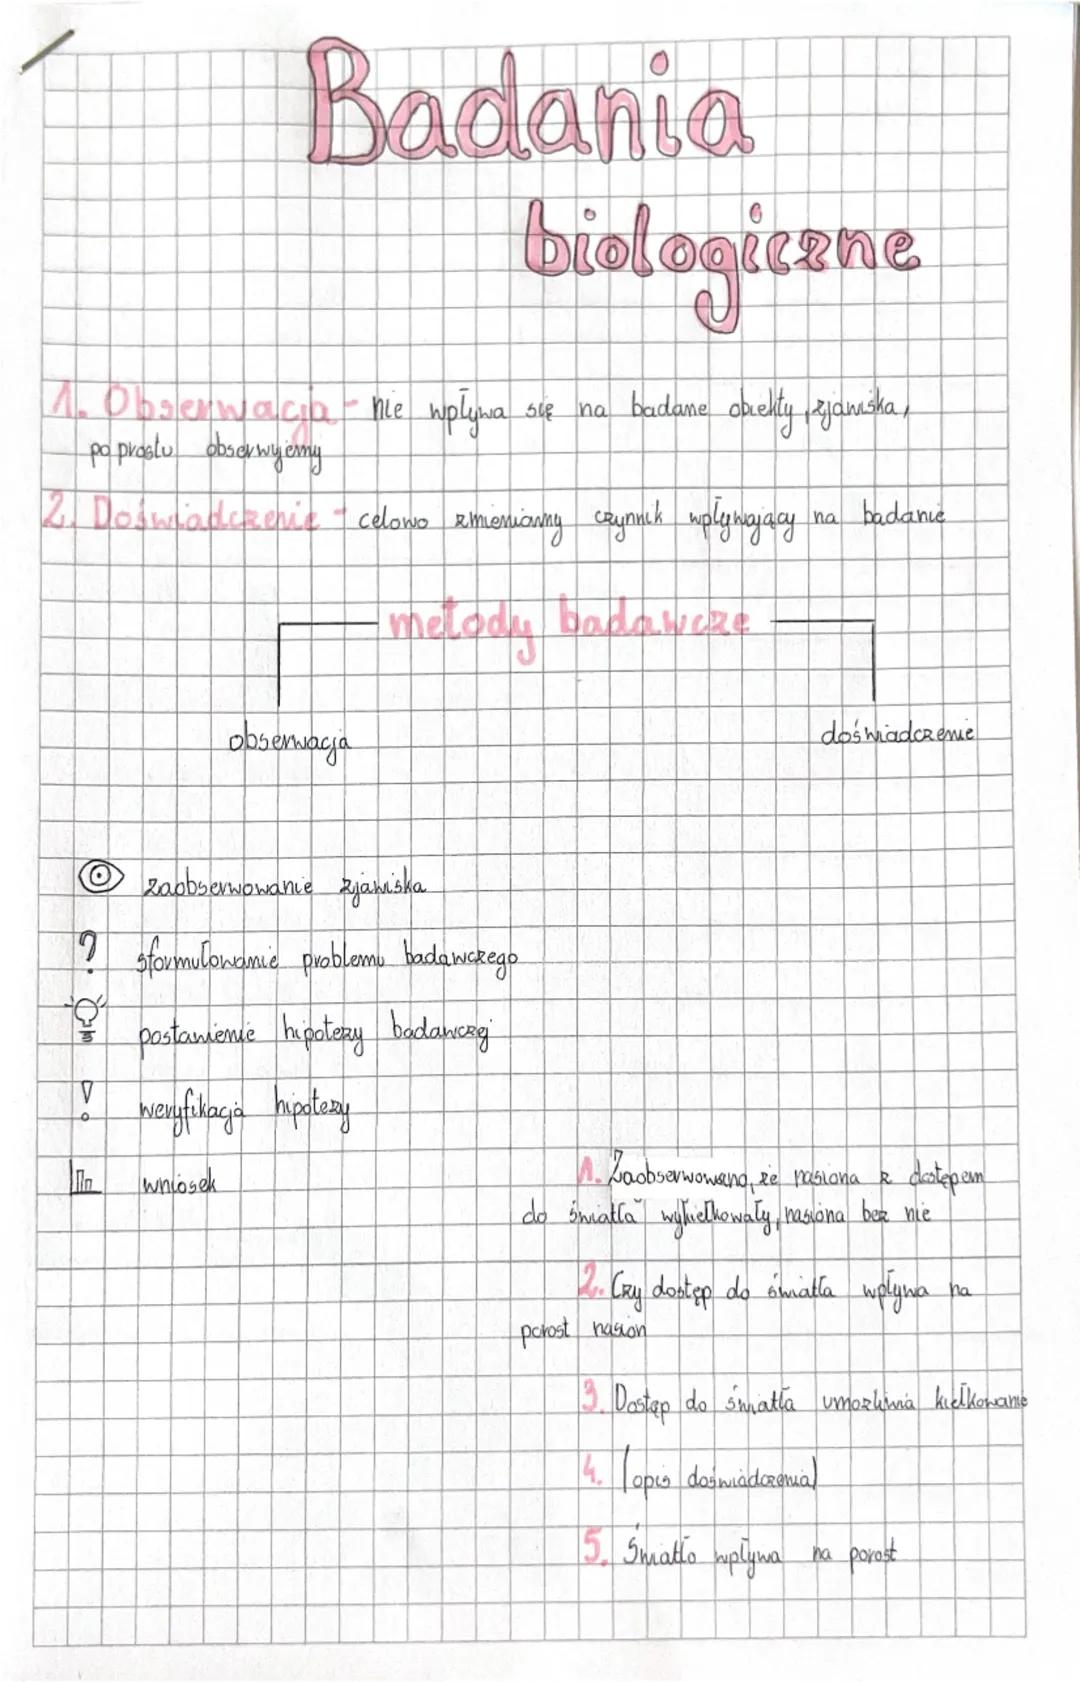 Badania
biologiczne
1. Obserwacja - nie wpływa się na badane obiekty, zjawiska,
po prostu obserwujemy
2. Doświadczenie - celowo zmieniamy czynnik wpływający na badanie
metody badawcze
obserwacja doświadczenie
zaobserwowanie zjawiska
? sformułowanie problemu badawczego
postawienie hipotezy badawczej
! weryfikacja hipotezy
wniosek
1. Zaobserwowano, że nasiona z dostępem
do światła wykiełkowały, nasiona bez nie
2. Czy dostęp do światła wpływa na
porost nasion
3. Dostęp do światła umożliwia kiełkowanie
4. (opis doświadczenia)
5. Światło wpływa na porost